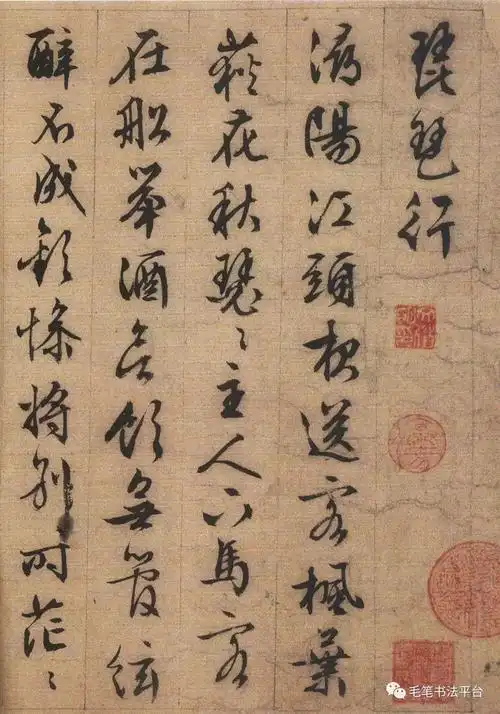 琵琶行
潯陽江頭夜送客楓葉
荻花秋瑟〻主人下馬客
在船舉酒欲飲無管絃
醉不成歡慘將別時茫〻
毛笔书法平台